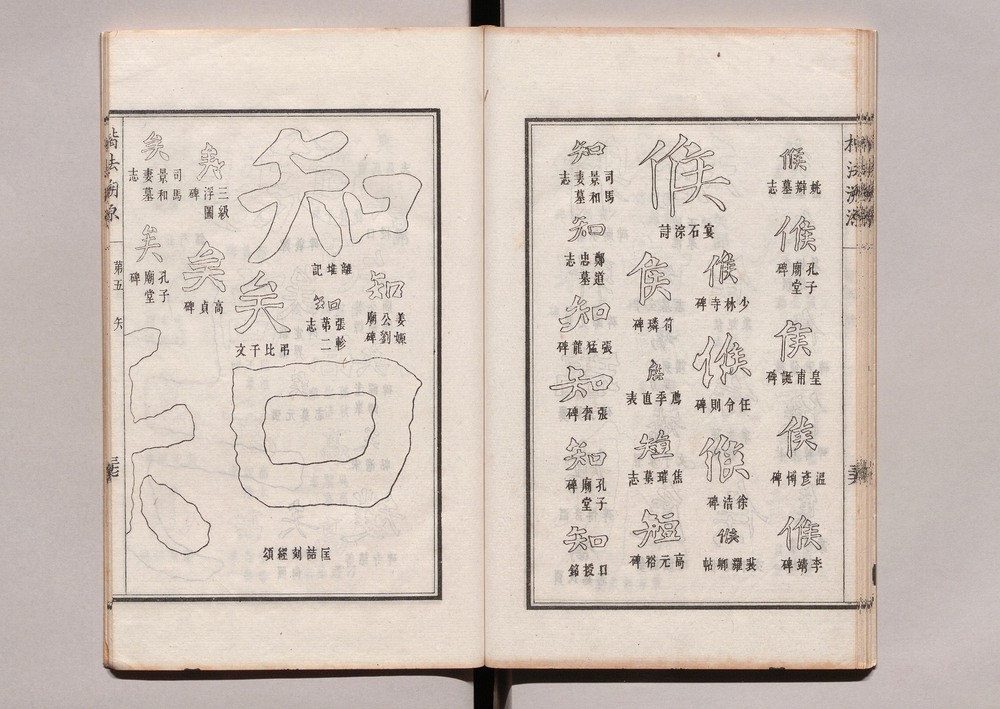 侯
姚辯墓志
侯
孔子廟堂碑
侯
皇甫誕碑
侯
溫彥博碑
侯
李靖碑
侯
宴石淙詩
侯
少林寺碑
侯
任令則碑
侯
徐浩碑
侯
裴耀卿帖
侯
符璘碑
侯
薦季直表
短
焦璀墓志
短
高元裕碑
知
司馬景和妻墓志
知
鄭道忠墓志
知
張猛龍碑
知
張奢碑
知
孔子廟堂碑
知
口授銘
知
離堆記
知
姜嫄公劉廟碑
知
張軫第二志
矣
弔比干文
知
匡喆刻經頌
矣
三級浮圖碑
矣
高貞碑
矣
司馬景和妻墓志
矣
孔子廟堂碑
楷法溯源
第五 矢